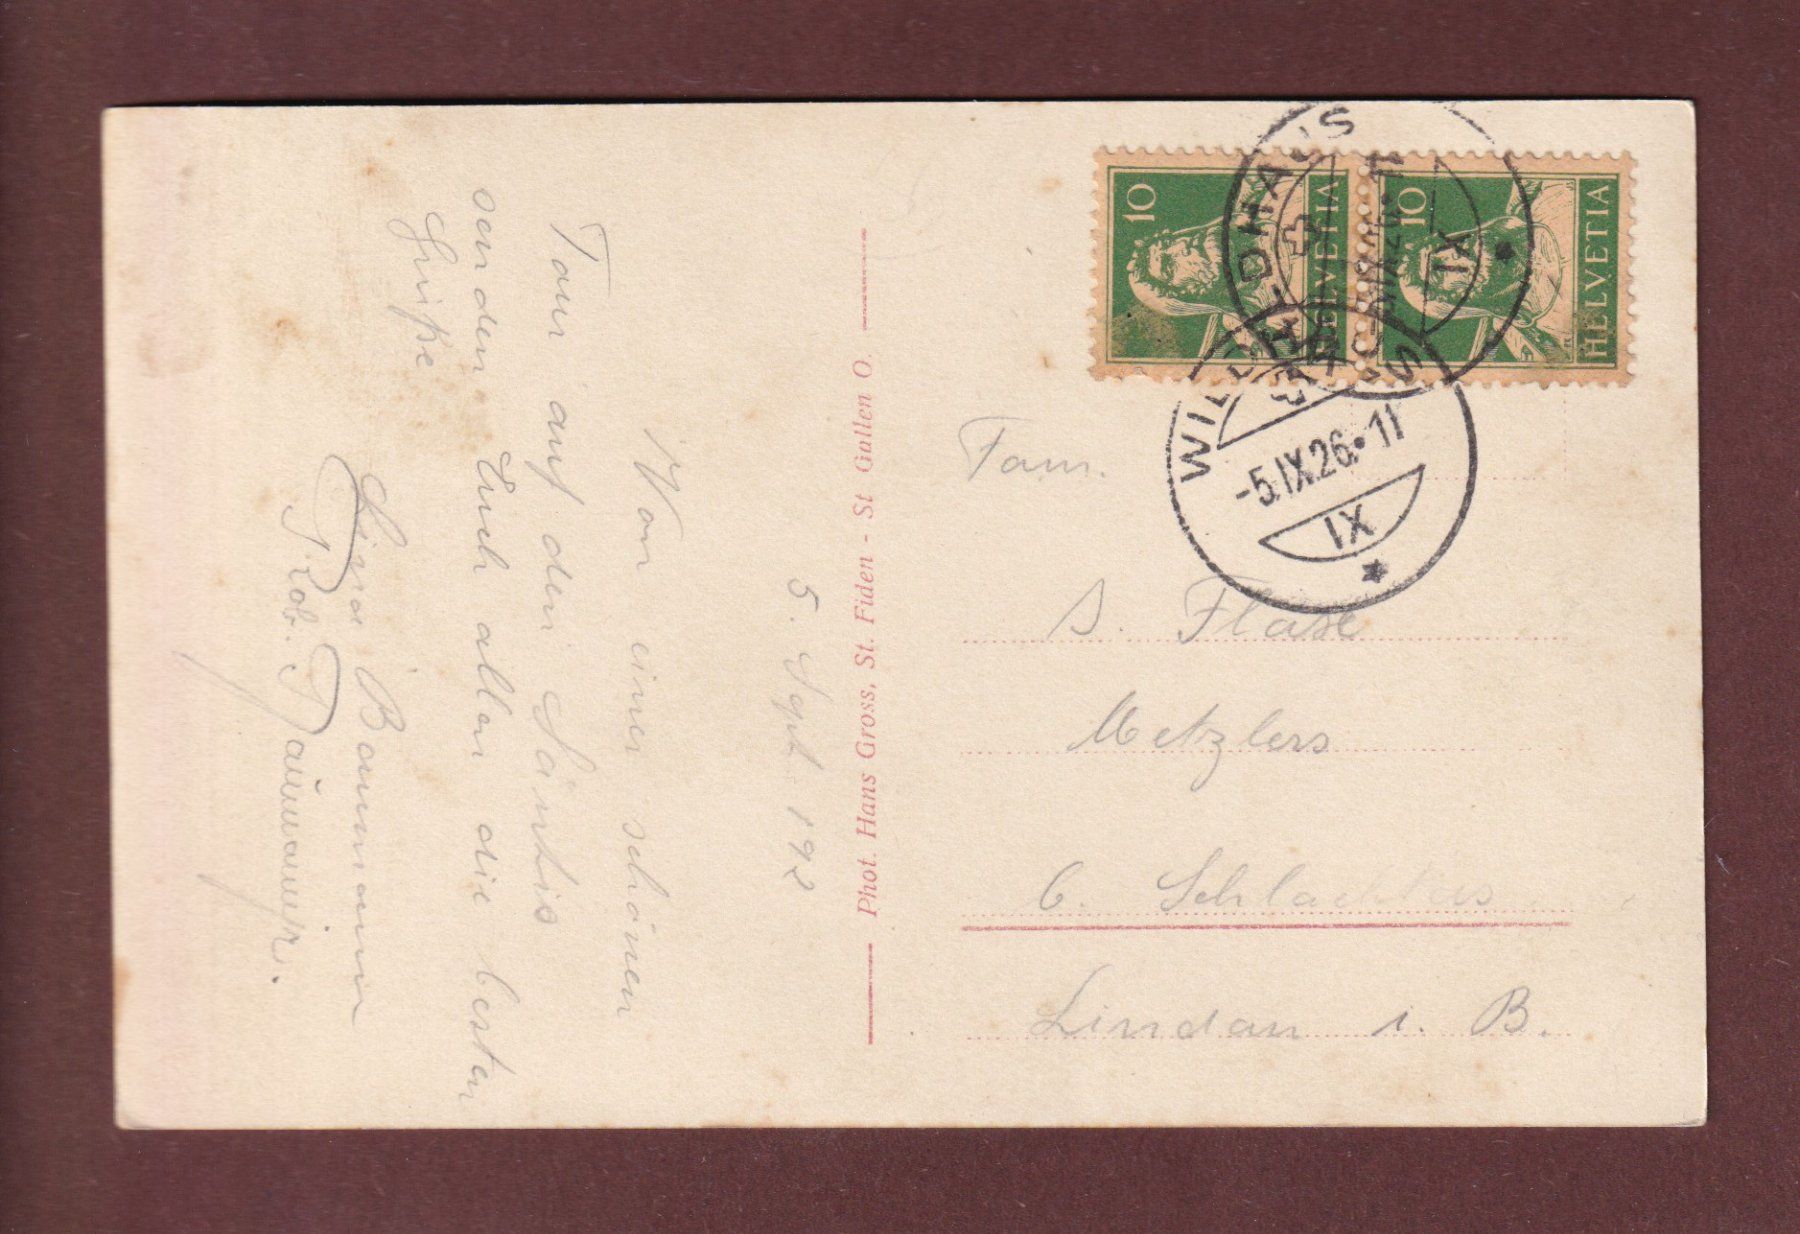 5. Sept. 192
Von einer schönen
Tour auf den Säntis
senden Euch allen die besten
Grüße
Baumann
Rob. Baumann.
Phot. Hans Gross, St. Fiden - St Gallen O.
10
HELVETIA
10
HELVETIA
WILDHAUS
IX
WILDHAUS
-5.IX.26.•11
IX
Fam.
Metzlers
b. Schlachthaus
Lindau i. B.